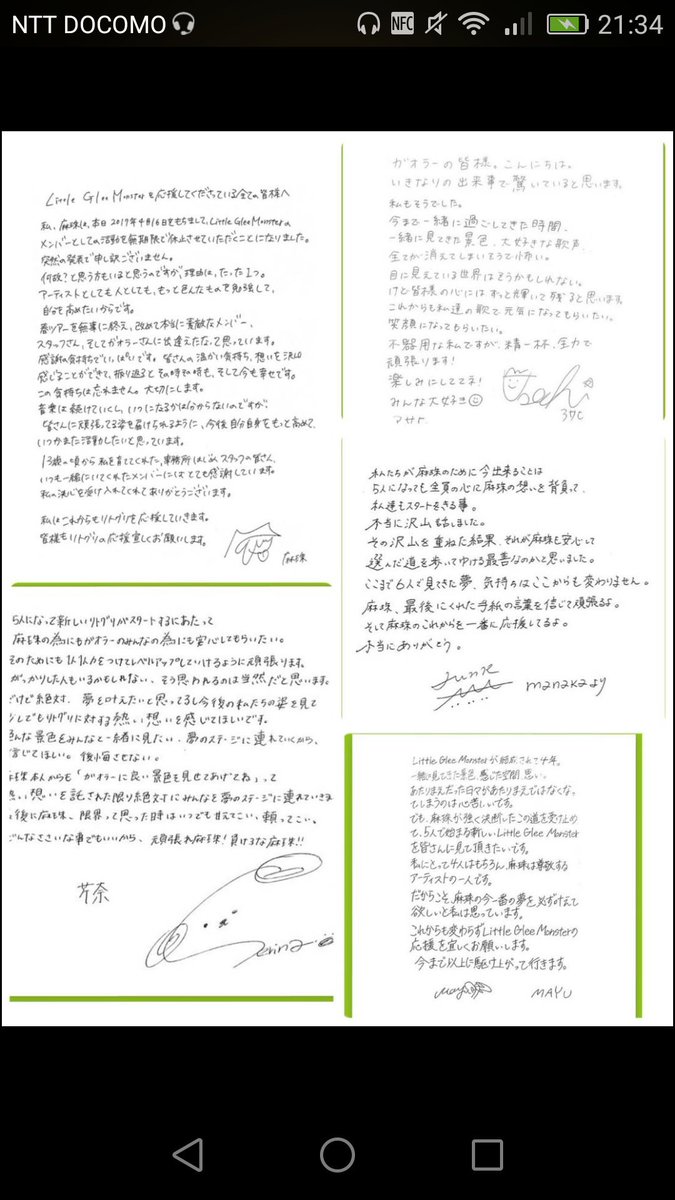 NTT DOCOMO
NFC
21:34
Little Glee Monsterを応援してくださっている全ての皆様へ
私、麻珠は、本日2017年4月16日をもちまして、Little Glee Monsterの
メンバーとしての活動を無期限で休止させていただくことになりました。
突然の発表で申し訳ございません。
何故?と思う方もいると思うのですが、理由は、たった1つ。
アーティストとしても人としても、もっと色んなものを勉強して、
自分を高めたいからです。
春ツアーを無事に終え、改めて本当に素敵なメンバー、
スタッフさん、そしてガオラーさんに出逢えたなって思っています。
感謝の気持ちでいっぱいです。皆さんの温かい気持ち、想いを沢山
感じることができて、振り返るとその時その時も、そして今も幸せです。
この気持ちは忘れません。大切にします。
音楽は続けていくし、いつになるかは分からないのですが、
皆さんに頑張ってる姿を届けられるように、今後自分自身をもっと高めて、
いつかまた活動したいと思っています。
13歳の頃から私を育ててくれた、事務所はじめ、スタッフの皆さん、
いつも一緒にいてくれたメンバーには とても感謝しています。
私の決心を受け入れてくれてありがとうございます。
私はこれからもリトグリを応援していきます。
皆様もリトグリの応援宜しくお願いします。
麻珠
ガオラーの皆様。こんにちは。
いきなりの出来事で驚いていると思います。
私もそうでした。
今まで一緒に過ごしてきた時間、
一緒に見てきた景色、大好きな歌声、
全てが消えてしまいそうで怖い。
目に見えている世界はそうかもしれない。
けど皆様の心にはずっと輝いて残ると思います。
これからも私達の歌で元気になってもらいたい。
笑顔になってもらいたい。
不器用な私ですが、精一杯、全力で
頑張ります!
楽しみにしててネ!
みんな大好き
アサヒ
私たちが麻珠のために今出来ることは
5人になっても全員の心に麻珠の想いを背負って、
私達もスタートをきる事。
本当に沢山話しました。
その沢山を重ねた結果、それが麻珠も安心して
選んだ道を歩いてゆける最善なのかと思いました。
ここまで6人で見てきた夢、気持ちはここからも変わりません。
麻珠、最後にくれた手紙の言葉を信じて頑張るよ。
そして麻珠のこれからを一番に応援してるよ。
本当にありがとう。
manaka
5人になって新しいリトグリがスタートするにあたって
麻珠の為にもガオラーのみんなの為にも安心してもらいたい。
そのためにも1人1人力をつけてレベルアップしていけるように頑張ります。
がっかりした人もいるかもしれない、そう思われるのは当然だと思います。
だけど絶対、夢を叶えたいと思ってるし今後の私たちの姿を見て
少しでもリトグリに対する熱い想いを感じてほしいです。
色んな景色をみんなと一緒に見たい、夢のステージに連れていくから、
信じてほしい。後悔させない。
麻珠本人からも「ガオラーに良い景色を見せてあげてね」って
熱い想いを託された限り絶対にみんなを夢のステージに連れていきます
最後に麻珠、限界って思った時はいつでも甘えてこい、頼ってこい、
どんなささいな事でもいいから、頑張れ麻珠!負けるな麻珠!!
芹奈
Serina
Little Glee Monsterが結成されて4年。
一緒に見てきた景色、感じた空間、思い。
あたりまえだった日々があたりまえではなくなっ
てしまうのは心苦しいです。
でも、麻珠が強く決断したこの道を受け止め
て、5人で始まる新しいLittle Glee Monster
を皆さんに見て頂きたいです。
私にとって4人はもちろん、麻珠は尊敬する
アーティストの一人です。
だからこそ、麻珠の今一番の夢を必ず叶えて
欲しいと私は思っています。
これからも変わらずLittle Glee Monsterの
応援を宜しくお願いします。
今まで以上に駆け上がって行きます。
MAYU